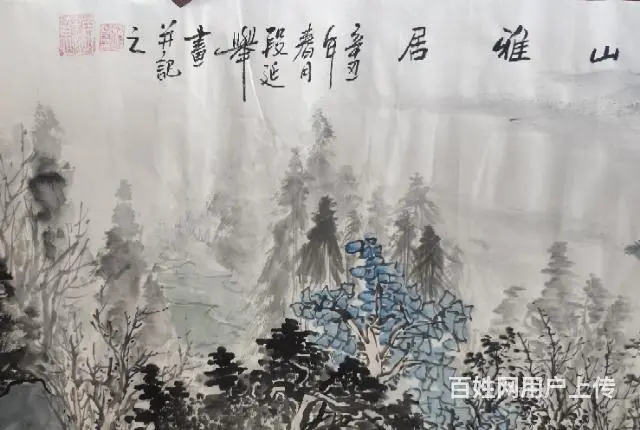 山雅居
辛丑
年
春月
段延
舉
畫
并記
之
百姓网用户上传